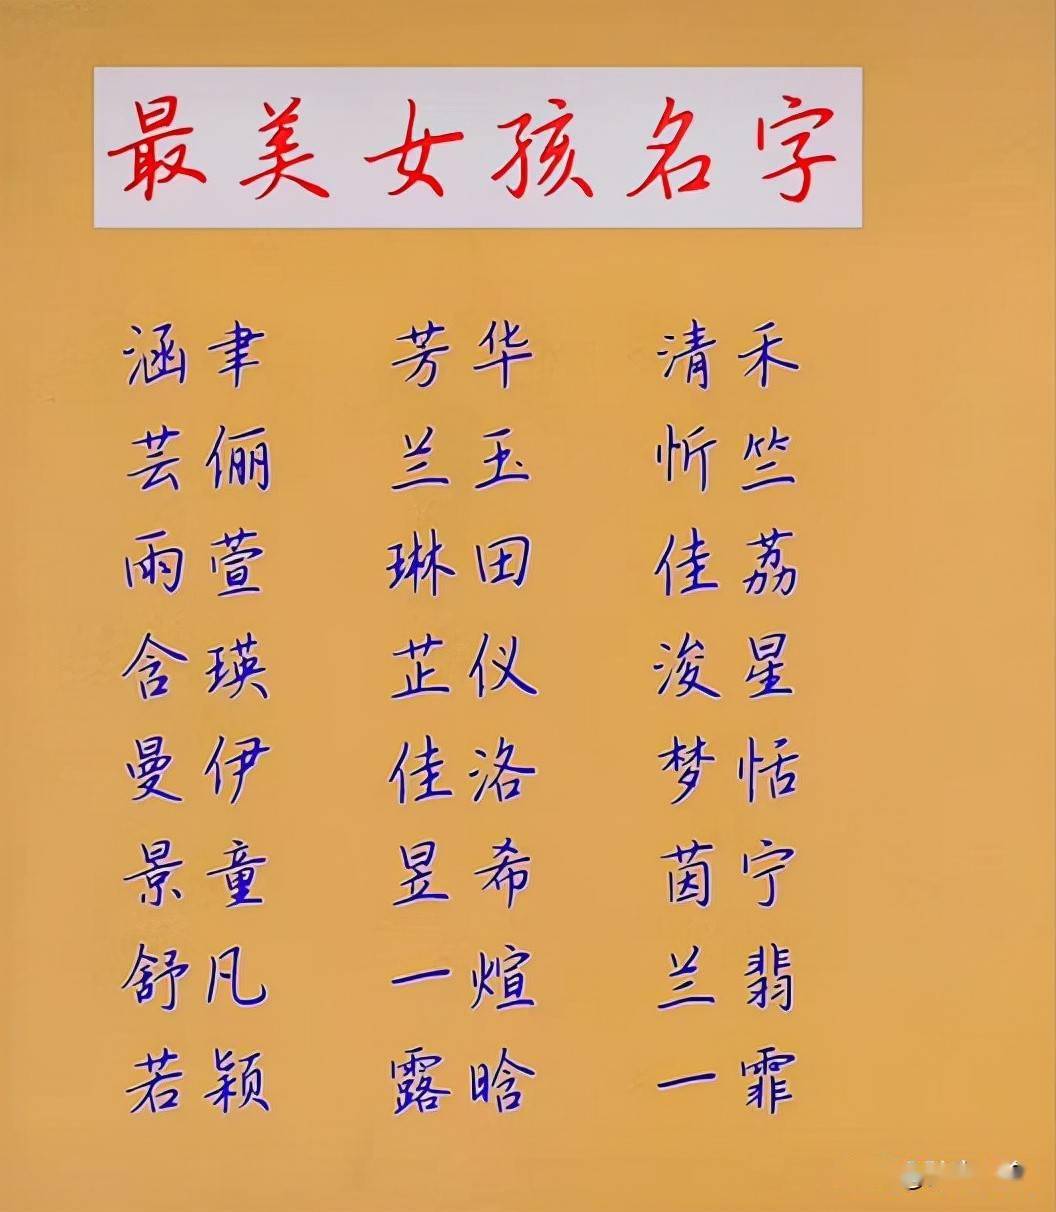 最美女孩名字
涵聿 芳华 清禾
芸俪 兰玉 忻竺
雨萱 琳田 佳荔
含瑛 芷仪 浚星
曼伊 佳洛 梦恬
景童 昱希 茵宁
舒凡 一煊 兰翡
若颖 露晗 一霏